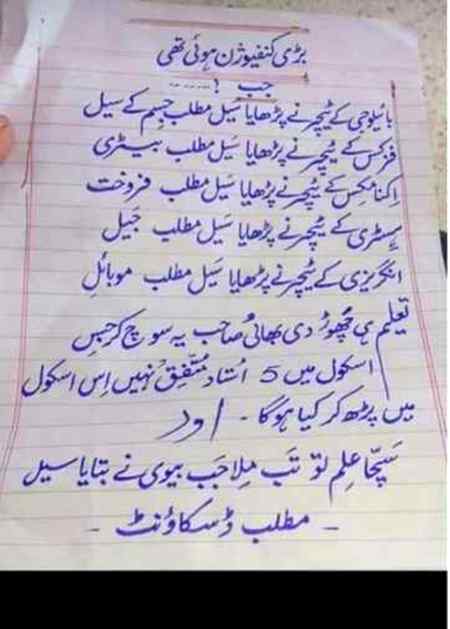 بڑی کنفیوژن ہوئی تھی
جب ! ......
بائیلوجی کے ٹیچر نے پڑھایا سَیل مطلب جِسم کے سیل
فزکس کے ٹیچر نے پڑھایا سَیل مطلب بیٹری
اِکنامکس کے ٹیچر نے پڑھایا سَیل مطلب فروخت
ہسٹری کے ٹیچر نے پڑھایا سَیل مطلب جَیل
انگریزی کے ٹیچر نے پڑھایا سَیل مطلب موبائل
تعلیم ہی چھوڑ دی بھائی صاحب یہ سوچ کر جِس
اسکول میں 5 اُستاد مُتّفِق نہیں اِس اسکول
میں پڑھ کر کیا ہوگا - اور
سَچّا عِلم تو تَب مِلا جَب بیوی نے بتایا سیل
- مطلب ڈسکاؤنٹ -